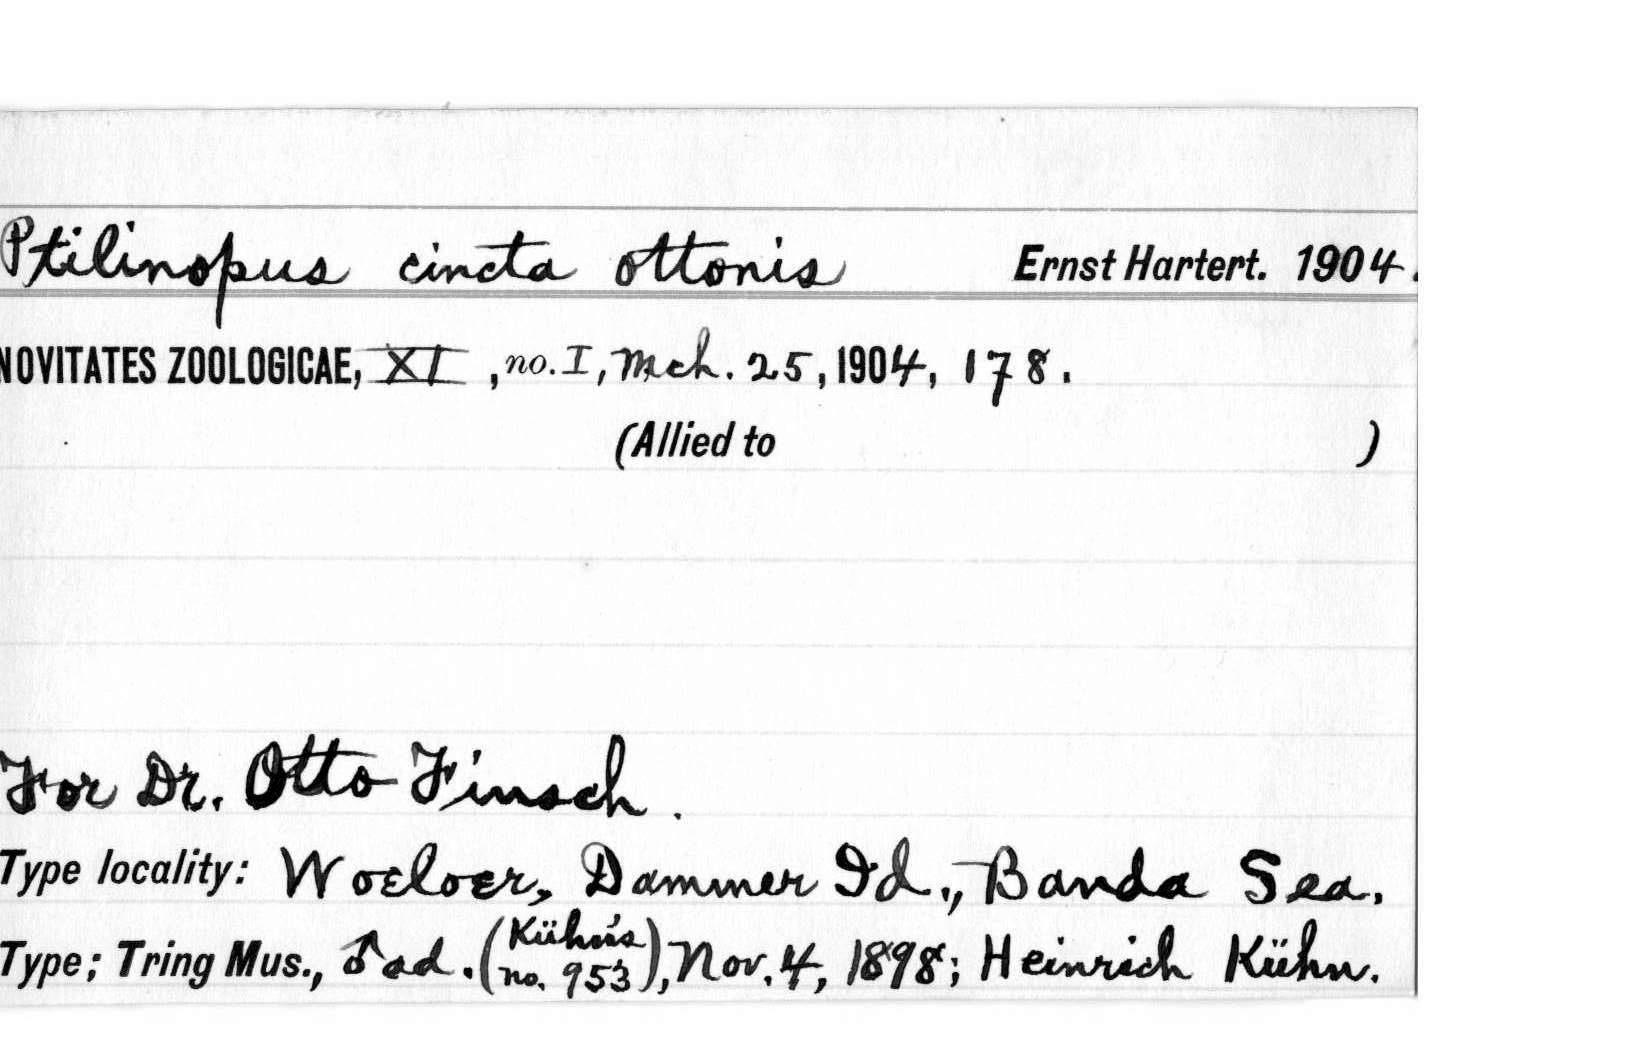 Ptilinopus cincta ottonis Ernst Hartert. 1904.
NOVITATES ZOOLOGICAE, XI, no. I, Mch. 25, 1904, 178.
(Allied to )
For Dr. Otto Finsch.
Type locality: Woeloer, Dammer Id., Banda Sea.
Type; Tring Mus., ♂ ad. (Kühn's no. 953), Nov. 4, 1898; Heinrich Kühn.